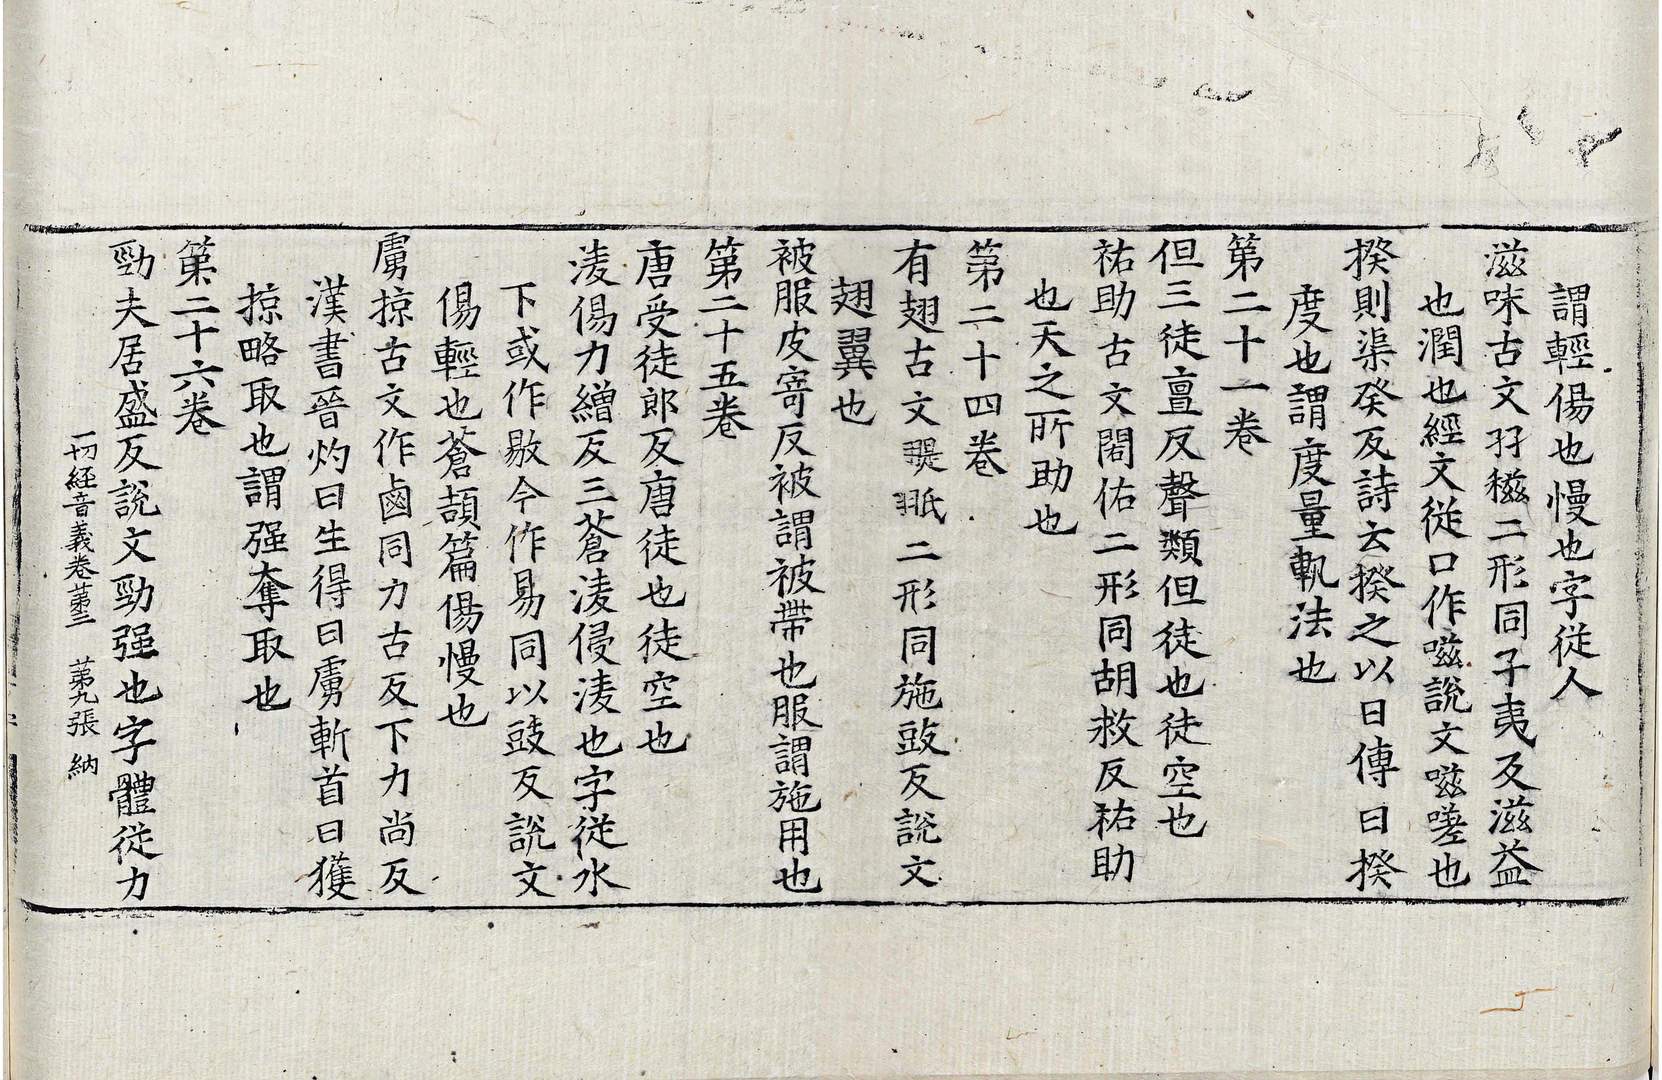 謂輕傷也慢也字従人
滋味古文孖稵二形同子夷反滋益
也潤也經文従口作嗞說文嗞嗟也
揆則渠癸反詩云揆之以日傳曰揆
度也謂度量軌法也
第二十一卷
但三徒亶反聲類但徒也徒空也
祐助古文閣佑二形同胡救反祐助
也天之所助也
第二十四卷
有翅古文翨䎗二形同施豉反說文
翅翼也
被服皮寄反被謂被帶也服謂施用也
第二十五卷
唐受徒郎反唐徒也徒空也
淩傷力繒反三蒼淩侵淩也字従水
下或作敡今作易同以豉反說文
傷輕也蒼頡篇傷慢也
虜掠古文作鹵同力古反下力尚反
漢書晉灼曰生得曰虜斬首曰獲
掠略取也謂强奪取也
第二十六卷
勁夫居盛反說文勁强也字體従力
一切經音義卷第三 第九張 納